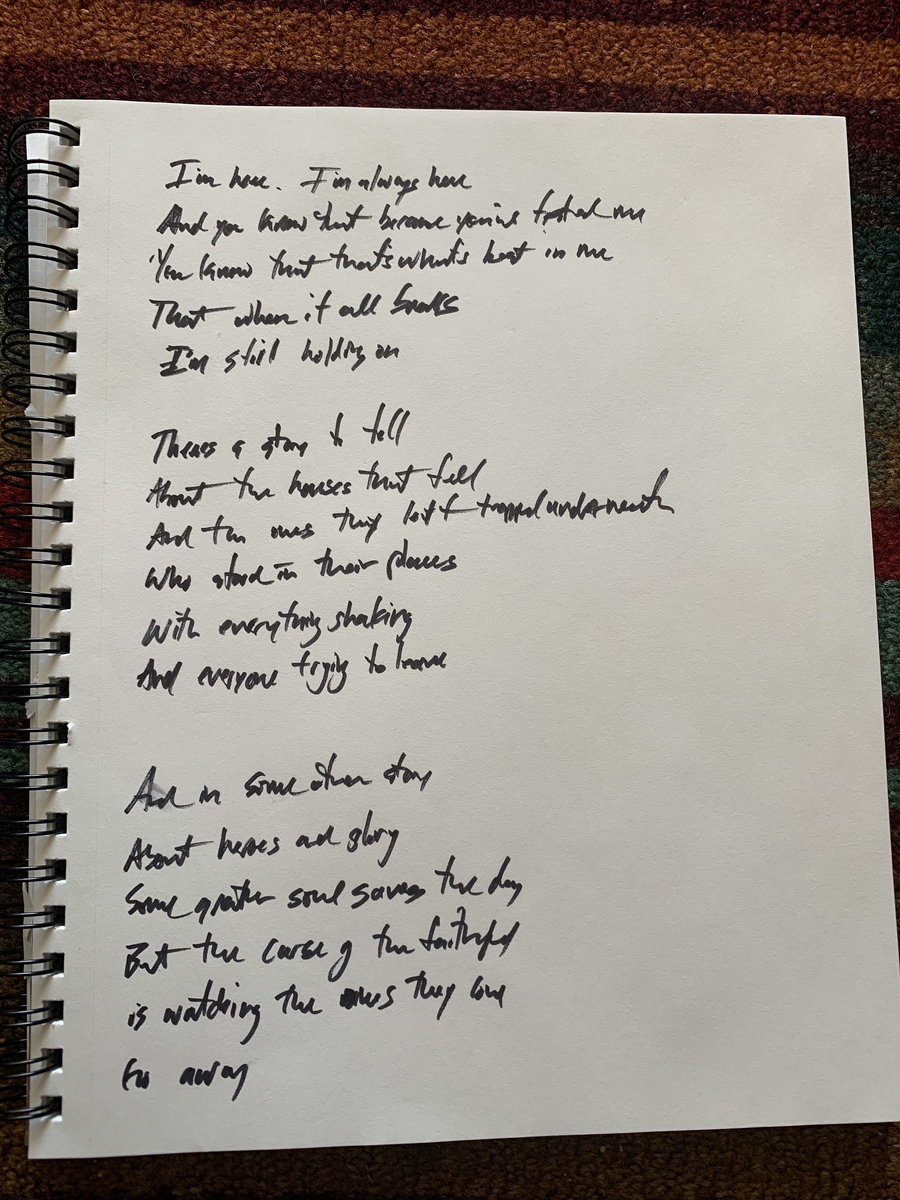 I'm here. I'm always here
And you know that because you've tested me
You know that that's what's best in me
That when it all breaks
I'm still holding on
Theres a story to tell
About the houses that fell
And the ones they left trapped underneath
Who stood in their places
With everything shaking
And everyone trying to leave
And in some other story
About heroes and glory
Some greater soul saves the day
But the curse of the faithful
is watching the ones they love
Go away